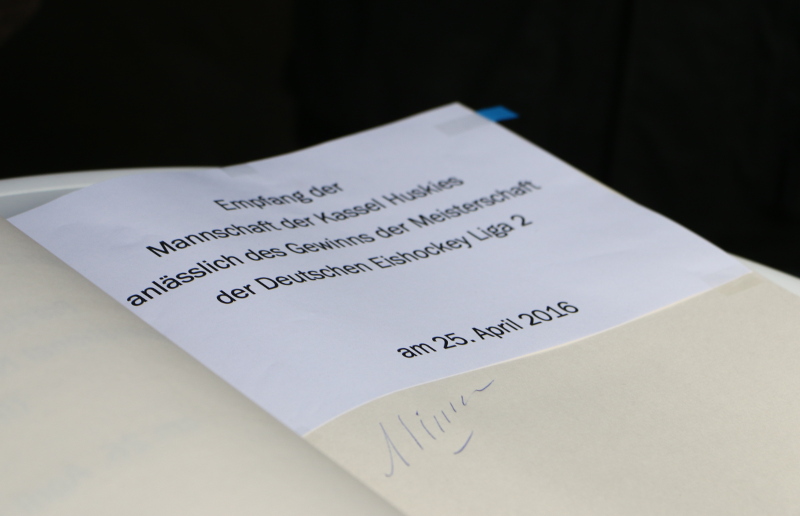 Empfang der
Mannschaft der Kassel Huskies
anlässlich des Gewinns der Meisterschaft
der Deutschen Eishockey Liga 2
am 25. April 2016